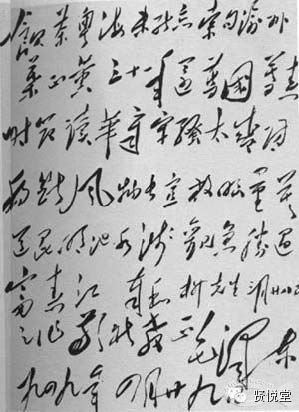 飲茶粵海未能忘索句渝州
葉正黃三十一年還舊國落花
時節讀華章牢騷太盛防
腸斷風物長宜放眼量莫
道昆明池水淺觀魚勝過
富春江 奉和柳先生三月廿八日
之作敬祈教正 毛澤東
一九四九年四月廿九日
贤悦堂